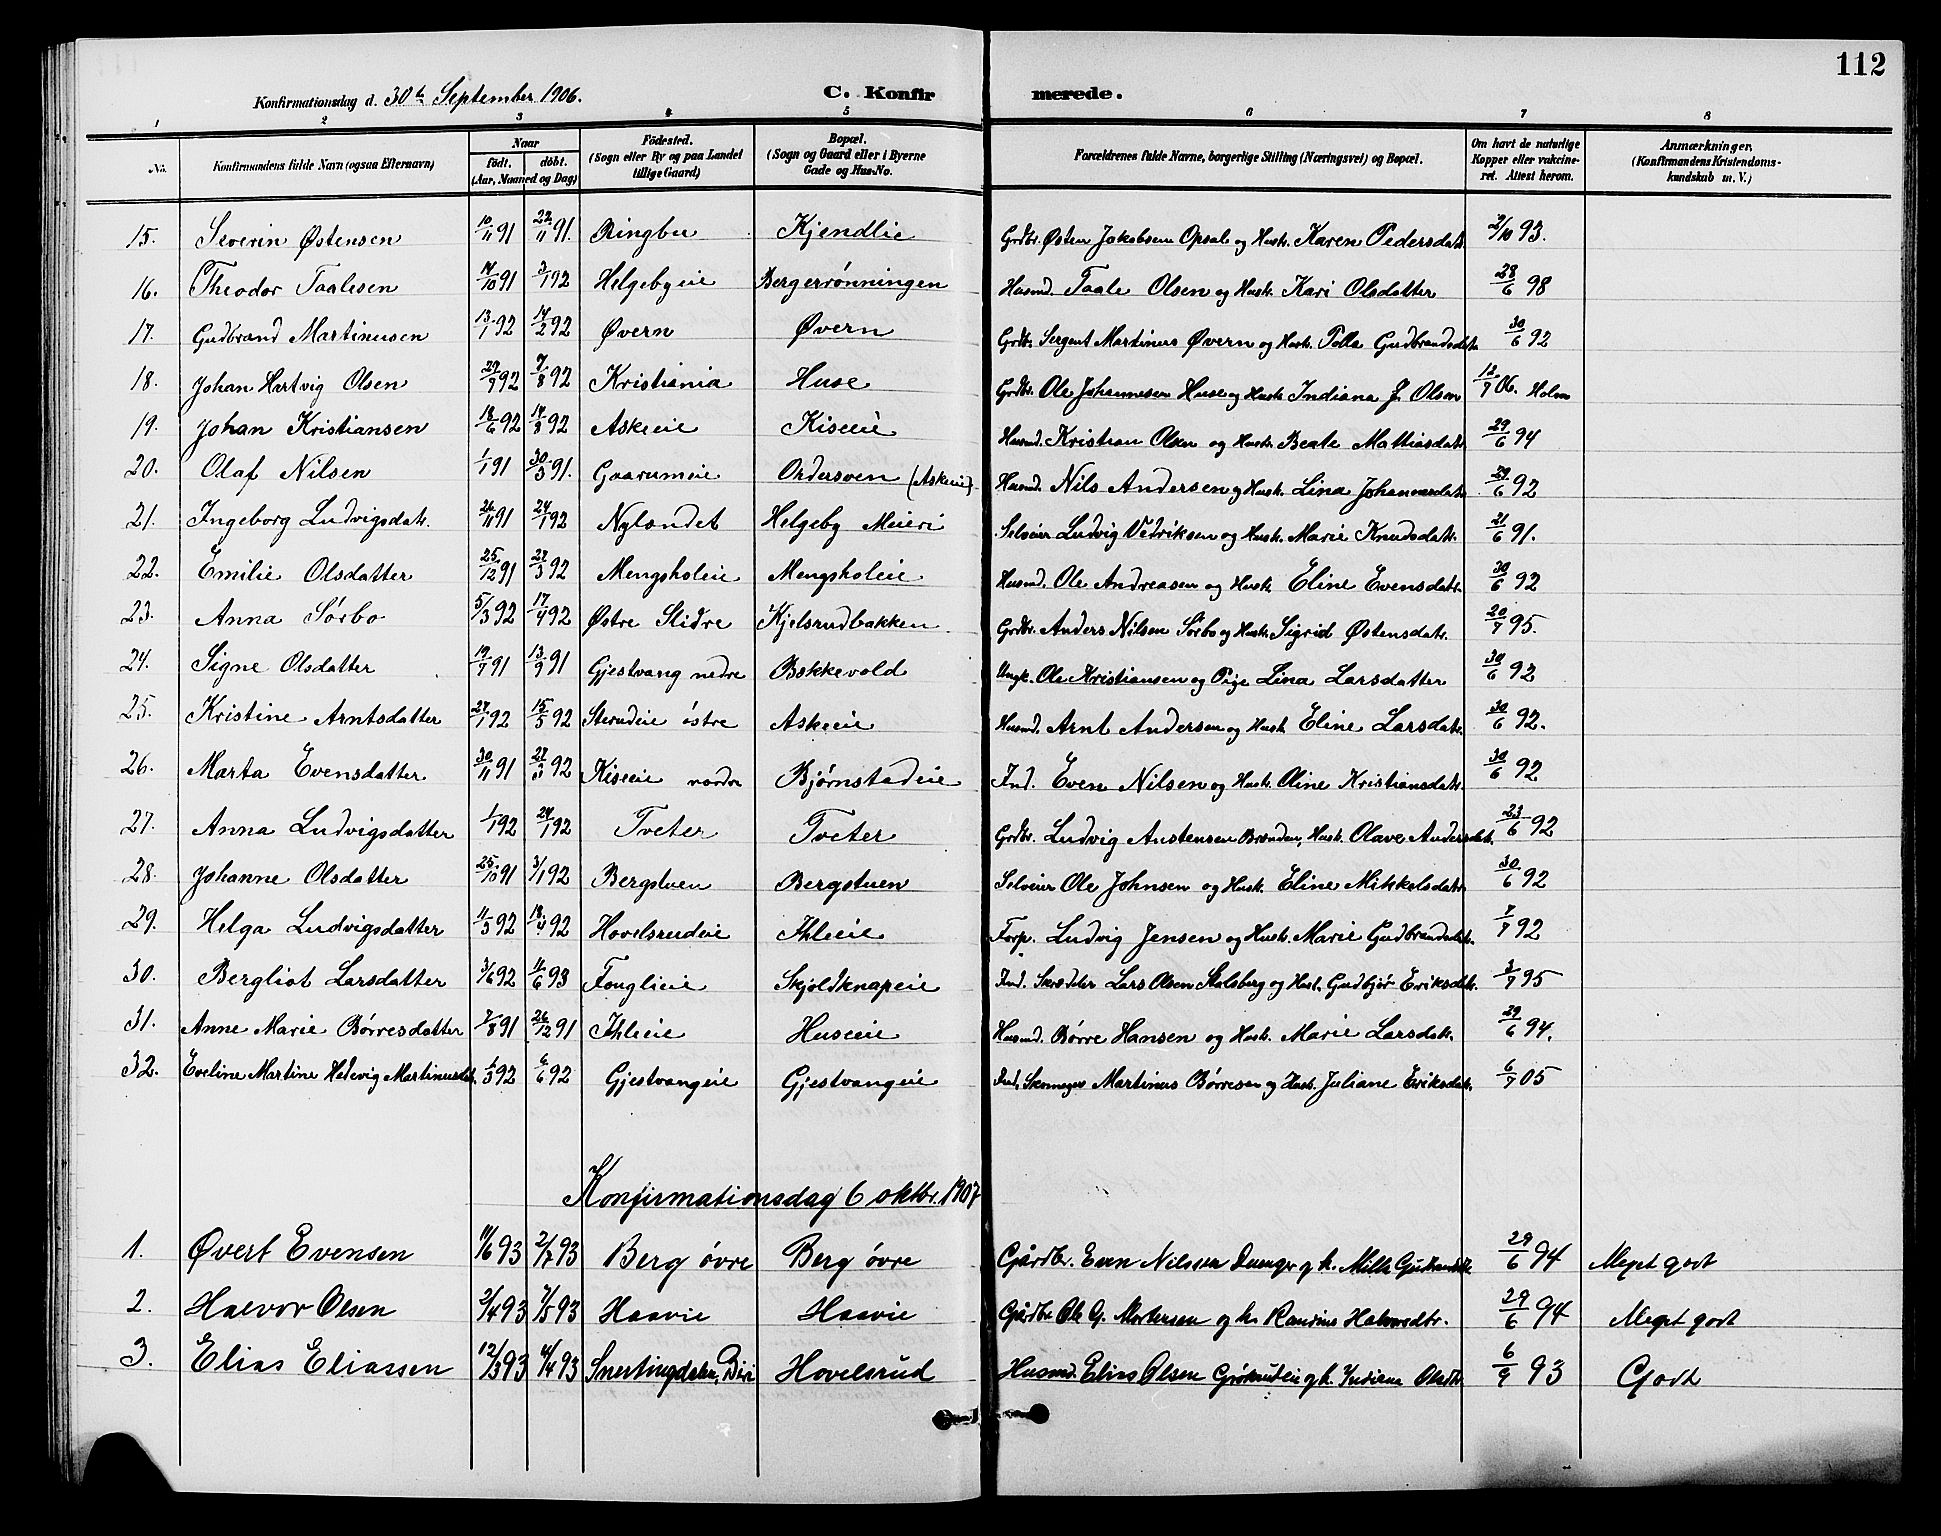 112
Konfirmationsdag d. 30te September 1906. C. Konfirmerede.
1 2 3 4 5 6 7 8
No. Konfirmandens fulde Navn (ogsaa Efternavn) Naar født, døbt. (Aar, Maaned og Dag) Fødested. (Sogn eller By og paa Landet tillige Gaard) Bopæl. (Sogn og Gaard eller i Byerne Gade og Hus-No. Forældrenes fulde Navne, borgerlige Stilling (Næringsvei) og Bopæl. Om havt de naturlige Kopper eller vakcineret. Attest herom. Anmærkninger, (Konfirmandens Kristendomskundskab m. V.)
15. Severin Østensen 10/11 91 22/11 91. Ringbu Kjendlie Grdbr. Østen Jakobsen Opsal og Hustr. Karen Pedersdatr. 2/10 93.
16. Theodor Taalesen 14/10 91 3/1 92 Helgebyeie Bergerrønningen Husmd. Taale Olsen og Hustr. Kari Olsdatter 28/6 98
17. Gudbrand Martinusen 13/1 92 14/2 92 Øvern Øvern Grdbr. Sergent Martinus Øvern og Hustr. Gudbrandsdtr. 30/6 92
18. Johan Hartvig Olsen 92 7/8 92 Kristiania Huse Grdbr. Ole Johannesen Huse og Hustr. Indiana J. Olsen 12/7 06. Holm
19. Johan Kristiansen 18/6 92 14/8 92 Askeeie Kiseeie Husmd. Kristian Olsen og Hustr. Beate Mathiasdatr. 29/6 94
20. Olaf Nilsen 1/1 91 30/3 91. Gaarumeie Ordersven (Askeeie) Husmd. Nils Andersen og Hustr. Lina Johannesdatr. 29/6 92
21. Ingeborg Ludvigsdatr. 26/11 91 24/1 92 Nylændet Helgeby Meieri Selveier Ludvig Vedriksen og Hustr. Marie Knudsdatr. 21/6 91.
22. Emilie Olsdatter 25/12 91 27/3 92 Mengsholeie Mengsholeie Husmd. Ole Andreasen og Hustr. Eline Evensdatr. 30/6 92
23. Anna Sørbo 5/3 92 17/4 92 Østre Slidre Kjelsrudbakken Grdbr. Anders Nilsen Sørbo og Hustr. Sigrid Østensdatr. 20/7 95.
24. Signe Olsdatter 19/7 91 13/9 91 Gjestvang nedre Bakkevold Ungk. Ole Kristiansen og Pige Lina Larsdatter 30/6 92
25. Kristine Arntsdatter 27/1 92 15/5 92 Sterudeie østre Askeeie Husmd. Arnt Andersen og Hustr. Eline Larsdatr. 30/6 92.
26. Marta Evensdatter 30/11 91 27/3 92 Kiseeie nordre Bjørnstadeie Ind. Even Nilsen og Hustr. Oline Kristiansdatr. 30/6 92
27. Anna Ludvigsdatter 1/1 92 24/1 92 Tveter Tveter Grdbr. Ludvig Austensen Brænden, Hustr. Olave Andersdatr. 23/6 92
28. Johanne Olsdatter 25/10 91 3/1 92 Bergstuen Bergstuen Selveier Ole Johnsen og Hustr. Eline Mikkelsdatr. 30/6 92
29. Helga Ludvigsdatter 11/3 92 18/4 92 Hovelsrudeie Ihleeie Forp. Ludvig Jensen og Hustr. Marie Gudbrandsdtr. 7/7 92
30. Bergliot Larsdatter 3/6 92 11/6 93 Fonglieie Skjoldknapeie Ind. Skrædder Lars Olsen Stalsberg og Hustr. Gudbjør Eriksdtr. 3/7 95
31. Anne Marie Børresdatter 7/8 91 26/12 91 Ihleeie Huseeie Husmd. Børre Hansen og Hustr. Marie Larsdatr. 29/6 94.
32. Eveline Martine Hedevig Martinusdtr. 1/3 92 6/6 92 Gjestvangeie Gjestvangeie Ind. Skomager Martinus Børresen og Hustr. Juliane Eriksdatr. 6/7 05
Konfirmationsdag 6 oktbr. 1907
1. Øvert Evensen 11/6 93 2/7 93 Berg øvre Berg øvre Gårdbr. Even Nilssen og h. Mille 29/6 94 Meget godt
2. Halvor Olsen 2/4 93 7/5 93 Haavie Haavie Gårdbr. Ole G. Mortensen og h. Randine Halvorsdtr. 29/6 94 Meget godt
3. Elias Eliassen 12/3 93 4/4 93 Snertingdalen, Biri Hovelsrud Husmd. Elias Olsen og h. Indiane Olsdtr. 6/9 93 Godt